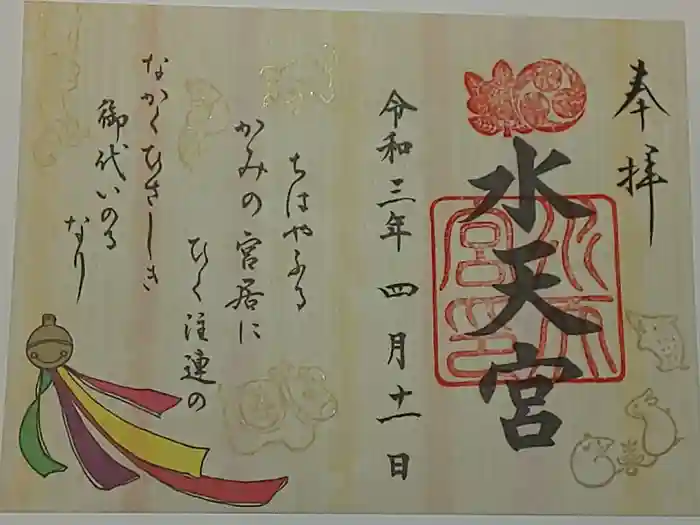 奉拝
水天宮
水天宮印
令和三年四月十一日
ちはやふる
かみの宮居に
ひく注連の
なかくひさしき
御代いのる
なり